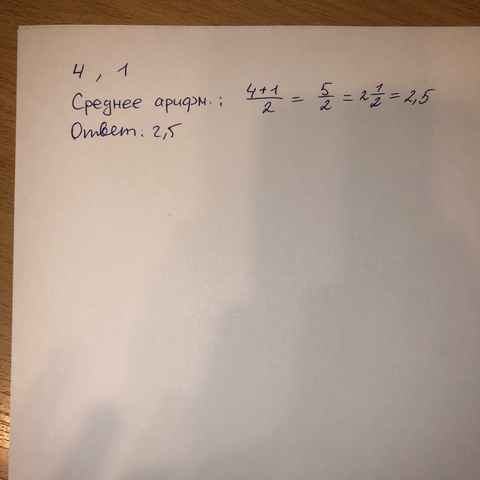 4 , 1
Среднее арифм.: (4+1)/2 = 5/2 = 2 1/2 = 2,5
Ответ: 2,5